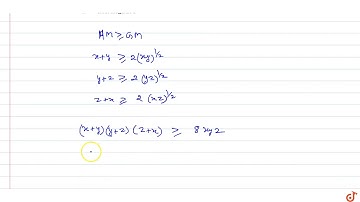 AM ≥ GM
x+y ≥ 2(xy)^1/2
y+z ≥ 2 (yz)^1/2
z+x ≥ 2 (xz)^1/2
(x+y)(y+z)(z+x) ≥ 8xyz